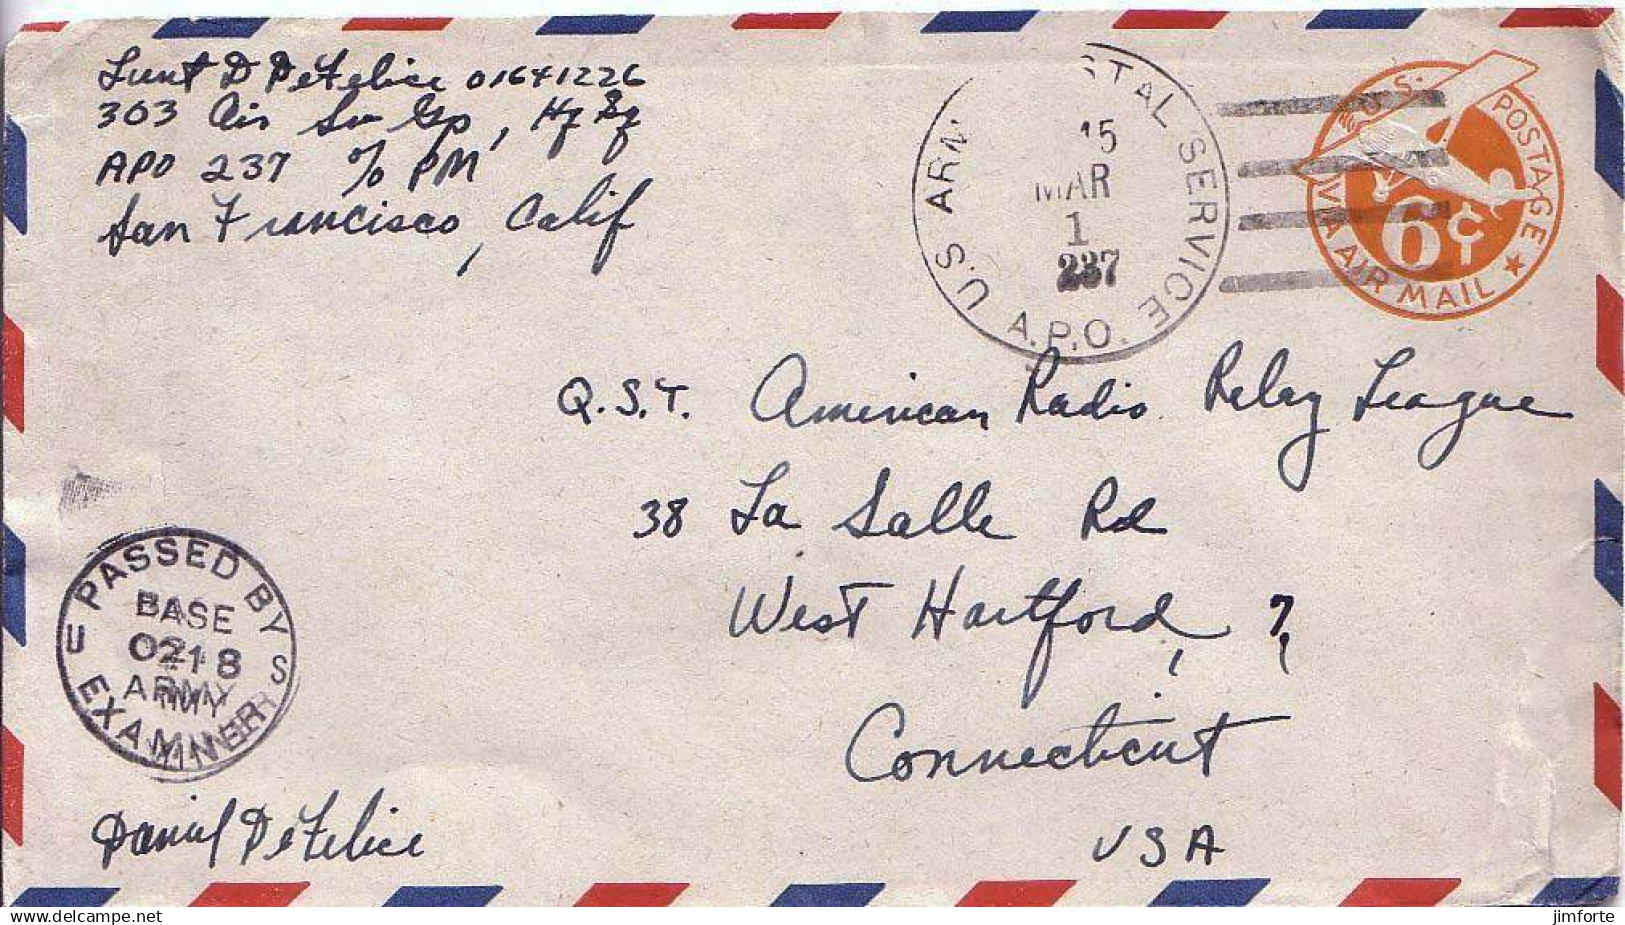 Lunt D DeFelice 01641226
303 Air Sv Gp, Hq Sq
APO 237 % PM
San Francisco, Calif
U.S. ARMY POSTAL SERVICE
A.P.O.
15
MAR
1
237
U.S. POSTAGE
VIA AIR MAIL
6¢
Q.S.T. American Radio Relay League
38 La Salle Rd
West Hartford, 7,
Connecticut
USA
PASSED BY
BASE
0218
ARMY
EXAMINER
U S
Daniel DeFelice
jimforte